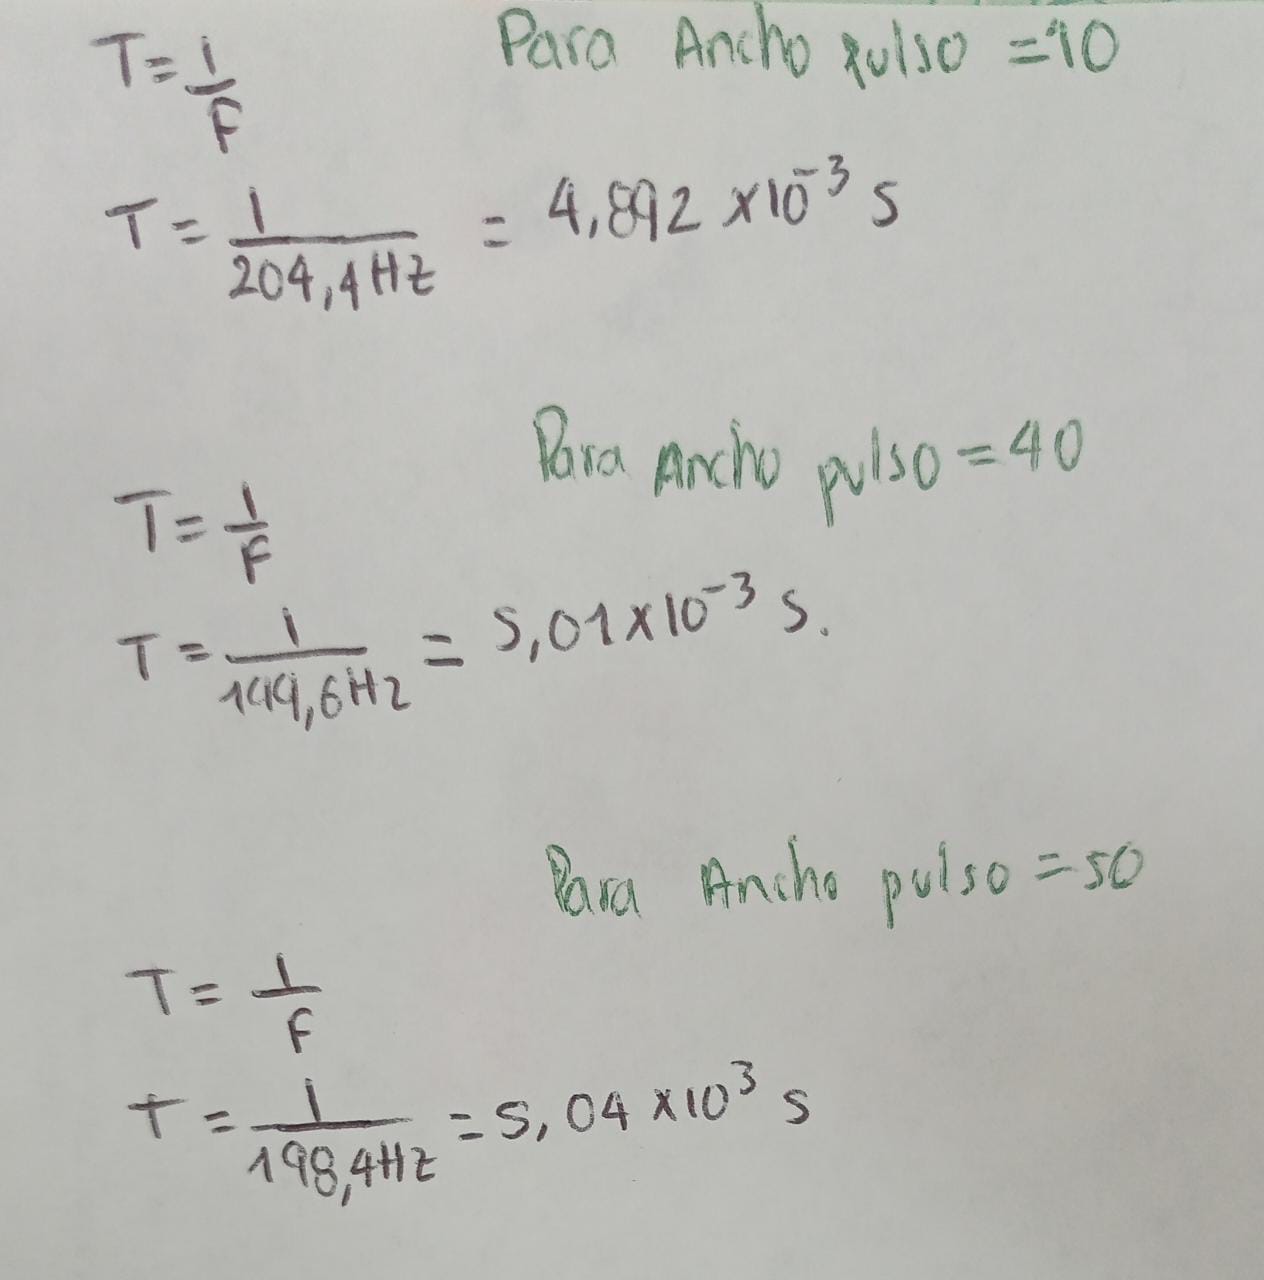 Para Ancho pulso = 10
T = 1/F
T = 1/204,4 Hz = 4,892 x10⁻³ s
Para Ancho pulso = 40
T = 1/F
T = 1/199,6 Hz = 5,01 x 10⁻³ s.
Para Ancho pulso = 50
T = 1/F
T = 1/198,4 Hz = 5,04 x10³ s